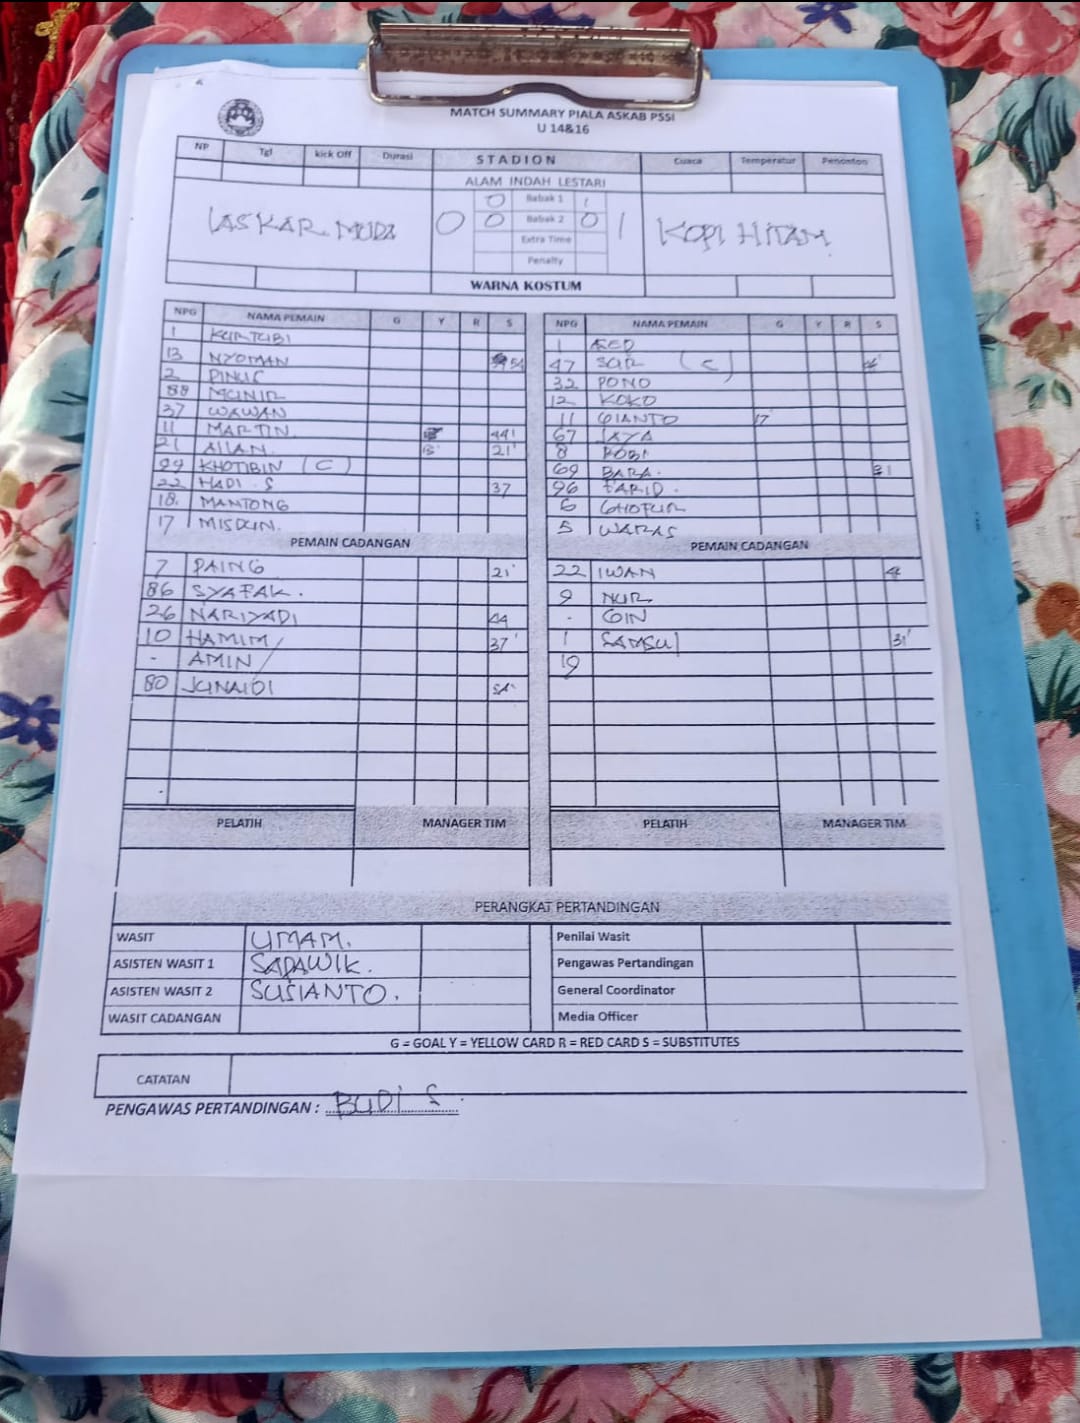 MATCH SUMMARY PIALA ASKAB PSSI
U 14&16
NP Tgl kick Off Durasi STADION Cuaca Temperatur Penonton
ALAM INDAH LESTARI
LASKAR MUDA 0 1 KOPI HITAM
0 Babak 1 1
0 Babak 2 0
Extra Time
Penalty
WARNA KOSTUM
NPG NAMA PEMAIN G Y R S NPG NAMA PEMAIN G Y R S
1 KURTUBI 1
13 NYOMAN 54 47 (C)
2 PINUC 32 PONO
88 MUNIR 12 KOKO
37 WAWAN 11 GIANTO 17'
11 MARTIN 44' 67 JAYA
21 ALLAN 21' 8 ROBI
99 KHOTIBIN (C) 69 BARA. 31
22 HADI. S 37 96 FARID.
18. MANTONG 6 GHOFUR
17 MISDUN. 5 WARAS
PEMAIN CADANGAN PEMAIN CADANGAN
7 PAING 21' 22 IWAN
86 SYAFAK. 9 NUR
26 NARIYADI 44 - GIN
10 HAMIM 37' 1 SAMSUL 31'
- AMIN 19
80 JUNAIDI 54'
PELATIH MANAGER TIM PELATIH MANAGER TIM
PERANGKAT PERTANDINGAN
WASIT UMAM. Penilai Wasit
ASISTEN WASIT 1 SADAWIK. Pengawas Pertandingan
ASISTEN WASIT 2 SUSIANTO. General Coordinator
WASIT CADANGAN Media Officer
G = GOAL Y = YELLOW CARD R = RED CARD S = SUBSTITUTES
CATATAN
PENGAWAS PERTANDINGAN : BUDI S.